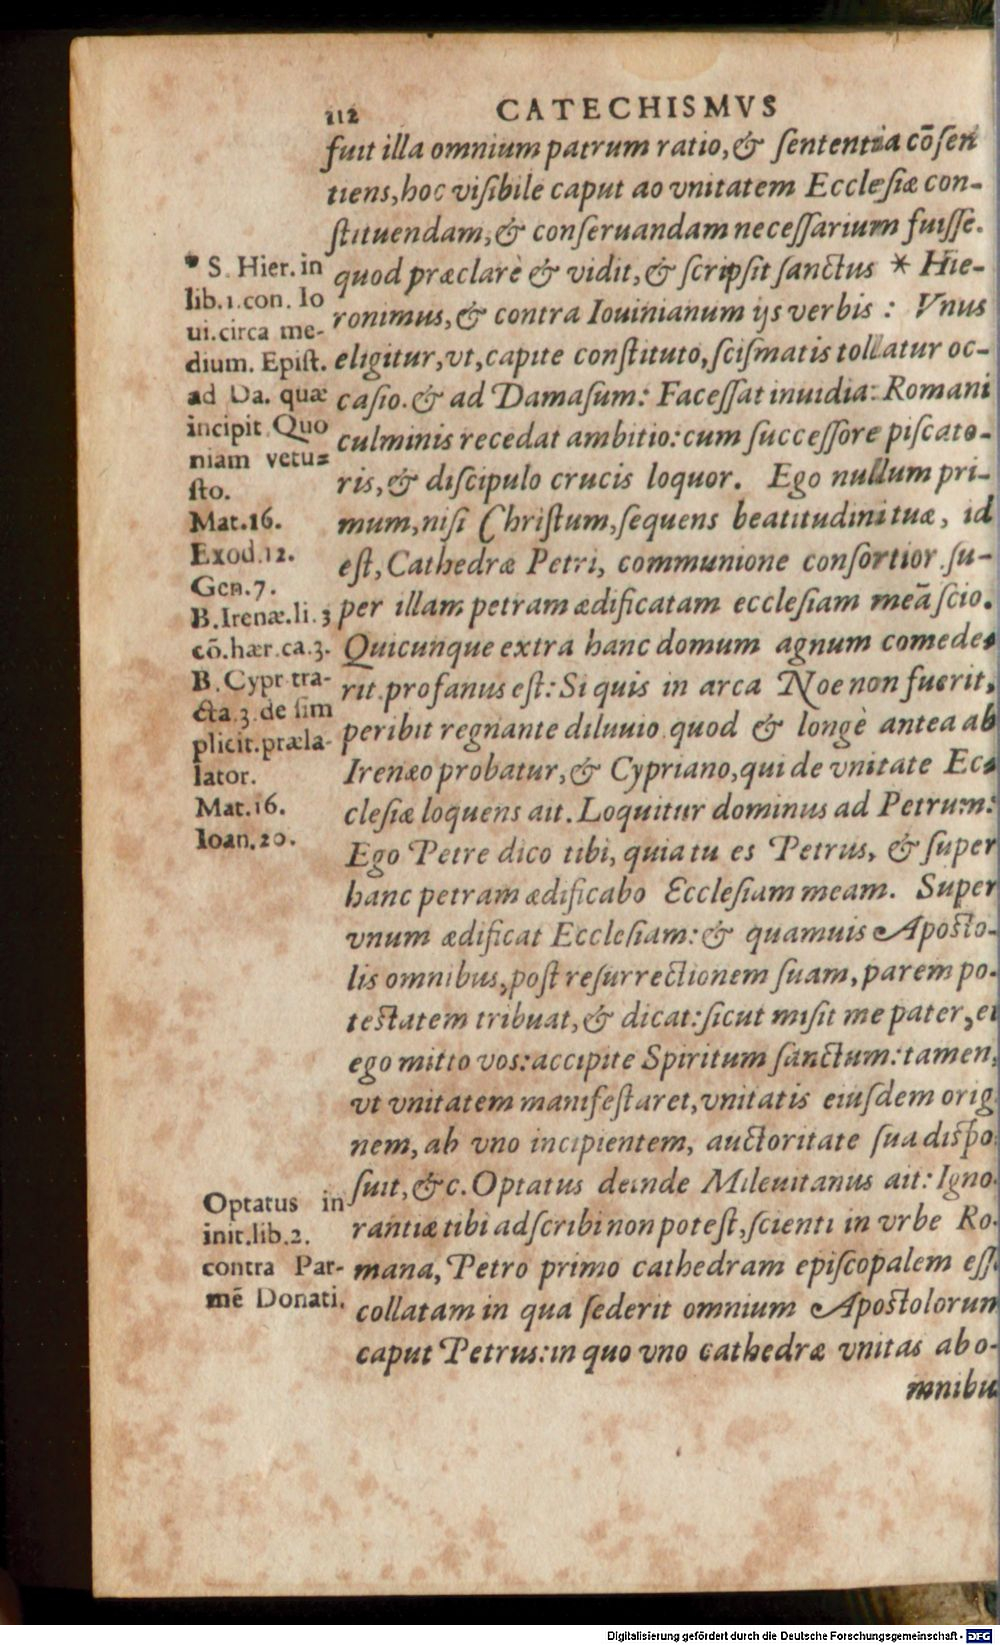 112 CATECHISMVS
fuit illa omnium patrum ratio, & sententia cõsen
tiens, hoc visibile caput ad vnitatem Ecclesiæ con-
stituendam, & conseruandam necessarium fuisse.
quod præclarè & vidit, & scripsit sanctus * Hie-
ronimus, & contra Iouinianum ijs verbis : Vnus
eligitur, vt, capite constituto, scismatis tollatur oc-
casio. & ad Damasum: Facessat inuidia: Romani
culminis recedat ambitio: cum successore piscato-
ris, & discipulo crucis loquor. Ego nullum pri-
mum, nisi Christum, sequens beatitudini tuæ, id
est, Cathedræ Petri, communione consortior. su-
per illam petram ædificatam ecclesiam meã scio.
Quicunque extra hanc domum agnum comede-
rit. profanus est: Si quis in arca Noe non fuerit,
peribit regnante diluuio. quod & longè antea ab
Irenæo probatur, & Cypriano, qui de vnitate Ec-
clesiæ loquens ait. Loquitur dominus ad Petrum:
Ego Petre dico tibi, quia tu es Petrus, & super
hanc petram ædificabo Ecclesiam meam. Super
vnum ædificat Ecclesiam: & quamuis Aposto-
lis omnibus, post resurrectionem suam, parem po-
testatem tribuat, & dicat: sicut misit me pater, et
ego mitto vos: accipite Spiritum sanctum: tamen,
vt vnitatem manifestaret, vnitatis eiusdem orig
nem, ab vno incipientem, auctoritate sua dispo
suit, &c. Optatus deinde Mileuitanus ait: Igno
rantiæ tibi adscribi non potest, scienti in vrbe Ro-
mana, Petro primo cathedram episcopalem ess
collatam in qua sederit omnium Apostolorum
caput Petrus: in quo vno cathedræ vnitas ab o-
mnibu
* S. Hier. in
lib. 1. con. Io
ui. circa me-
dium. Epist.
ad Da. quæ
incipit Quo
niam vetu-
sto.
Mat. 16.
Exod. 12.
Gen. 7.
B. Irenæ. li. 3
cõ. hær. ca. 3.
B. Cypr. tra-
cta. 3. de sim
plicit. præla-
lator.
Mat. 16.
Ioan. 20.
Optatus in
init. lib. 2.
contra Par-
mẽ Donati.
Digitalisierung gefördert durch die Deutsche Forschungsgemeinschaft - DFG